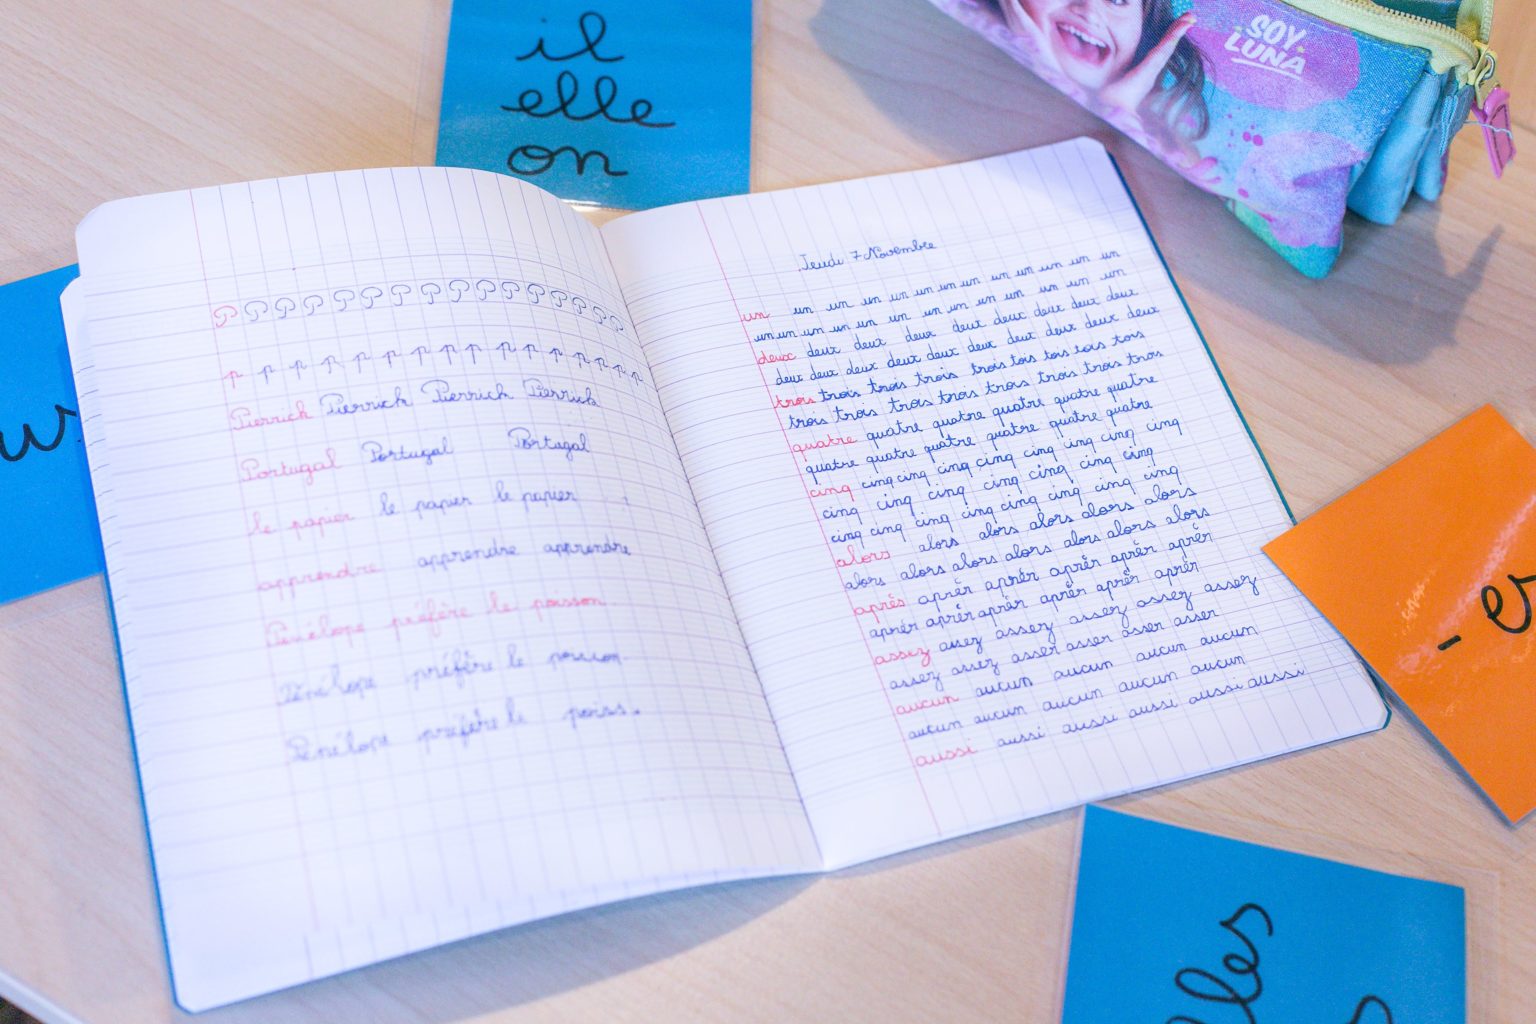 il
elle
on
SOY LUNA
P P P P P P P P P P P P P P P P
p p p p p p p p p p p p p p p p
Pierrick Pierrick Pierrick Pierrick
Portugal Portugal Portugal
le papier le papier le papier
apprendre apprendre apprendre
Pénélope préfère le poisson
Pénélope préfère le poisson.
Pénélope préfère le poiss.
Jeudi 7 Novembre
un un un un un un un un un un un un un
un un un un un un un un un un un un un
deux deux deux deux deux deux deux deux deux
deux deux deux deux deux deux deux deux deux deux
trois trois trois trois trois tois tois tois tois
trois trois trois trois trois trois trois trois
quatre quatre quatre quatre quatre quatre
quatre quatre quatre quatre quatre quatre
cinq cinq cinq cinq cinq cinq cinq cinq cinq
cinq cinq cinq cinq cinq cinq cinq
cinq cinq cinq cinq cinq cinq cinq cinq
alors alors alors alors alors alors
alors alors alors alors alors alors alors
après après après après après après
après après après après après après
assez assez assez assez assez assez
assez assez asser asser asser asser
aucun aucun aucun aucun aucun
aucun aucun aucun aucun aucun
aussi aussi aussi aussi aussi aussi
- er